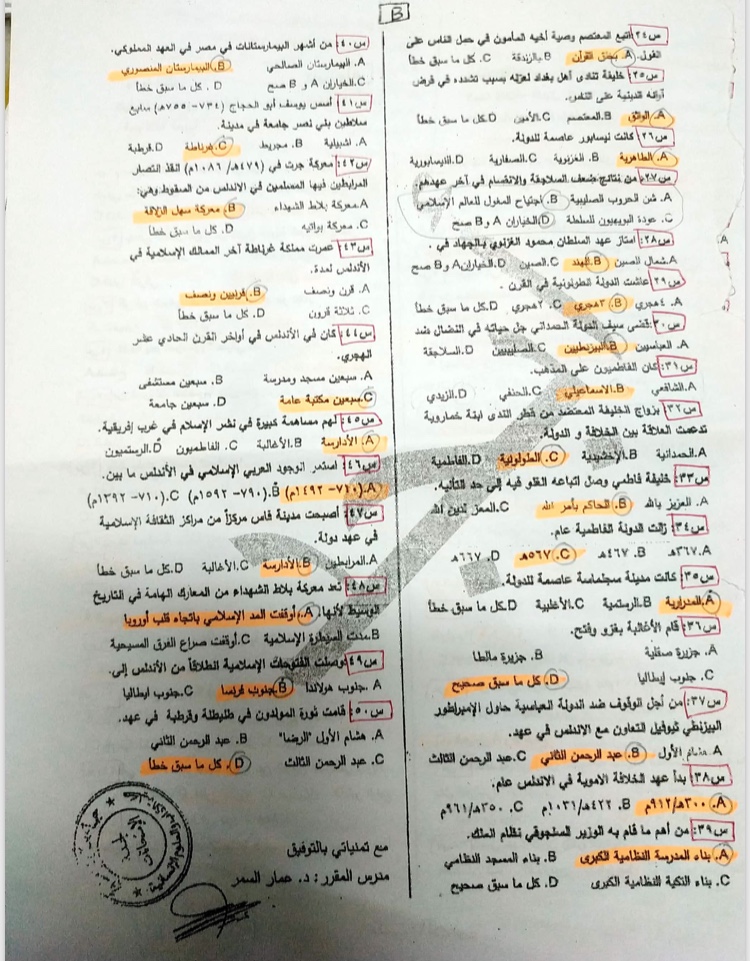 B
س٢٤: اتبع المعتصم وصية أخيه المأمون في حمل الناس على
القول. A. بخلق القرآن B. بالزندقة C. كل ما سبق خطأ
س٢٥: خليفة تنادى أهل بغداد لعزله بسبب تشدده في فرض
آرائه الدينية على الناس.
A. الواثق B. المعتصم C. الأمين D. كل ما سبق خطأ
س٢٦: كانت نيسابور عاصمة للدولة.
A. الطاهرية B. الغزنوية C. الصفارية D. النيسابورية
س٢٧: من نتائج ضعف السلاجقة والانقسام في آخر عهدهم.
A. شن الحروب الصليبية B. اجتياح المغول للعالم الإسلامي
C. عودة البويهيون للسلطة D. الخياران A و B صح
س٢٨: امتاز عهد السلطان محمود الغزنوي بالجهاد في.
A. شمال الصين B. الهند C. الصين D. الخياران A و B صح
س٢٩: عاشت الدولة الطولونية في القرن.
A. ٤هجري B. ٣هجري C. ٢هجري D. كل ما سبق خطأ
س٣٠: قضى سيف الدولة الحمداني جل حياته في النضال ضد
A. العباسيين B. البيزنطيين C. الصليبيين D. السلاجقة
س٣١: كان الفاطميون على المذهب.
A. الشافعي B. الاسماعيلي C. الحنفي D. الزيدي
س٣٢: بزواج الخليفة المعتضد من قطر الندى ابنة خمارويه
تدعمت العلاقة بين الخلافة و الدولة.
A. الحمدانية B. الإخشيدية C. الطولونية D. الفاطمية
س٣٣: خليفة فاطمي وصل اتباعه الغلو فيه إلى حد التأليه.
A. العزيز بالله B. الحاكم بأمر الله C. المعز لدين الله
س٣٤: زالت الدولة الفاطمية عام.
A. ٣٦٧هـ B. ٤٦٧هـ C. ٥٦٧هـ D. ٦٦٧هـ
س٣٥: كانت مدينة سجلماسة عاصمة للدولة.
A. المدرارية B. الرستمية C. الأغلبية D. كل ما سبق خطأ
س٣٦: قام الأغالبة بغزو وفتح.
A. جزيرة صقلية B. جزيرة مالطا
C. جنوب إيطاليا D. كل ما سبق صحيح
س٣٧: من أجل الوقوف ضد الدولة العباسية حاول الإمبراطور
البيزنطي ثيوفيل التعاون مع الاندلس في عهد.
A. هشام الأول B. عبد الرحمن الثاني C. عبد الرحمن الثالث
س٣٨: بدأ عهد الخلافة الاموية في الاندلس عام.
A. ٣٠٠هـ/٩١٢م B. ٤٢٢هـ/١٠٣١م C. ٣٥٠هـ/٩٦١م
س٣٩: من أهم ما قام به الوزير السلجوقي نظام الملك.
A. بناء المدرسة النظامية الكبرى B. بناء المسجد النظامي
C. بناء التكية النظامية الكبرى D. كل ما سبق صحيح
س٤٠: من أشهر البيمارستانات في مصر في العهد المملوكي.
A. البيمارستان الصالحي B. البيمارستان المنصوري
C. الخياران A و B صح D. كل ما سبق خطأ
س٤١: أسس يوسف أبو الحجاج (٧٣٤- ٧٥٥هـ) سابع
سلاطين بني نصر جامعة في مدينة.
A. اشبيلية B. مجريط C. غرناطة D. قرطبة
س٤٢: معركة جرت في (٤٧٩هـ/ ١٠٨٦م) انقذ انتصار
المرابطين فيها المسلمين في الاندلس من السقوط وهي:
A. معركة بلاط الشهداء B. معركة سهل الزلاقة
C. معركة بواتيه D. كل ما سبق خطأ
س٤٣: عمرت مملكة غرناطة آخر الممالك الإسلامية في
الأندلس لمدة.
A. قرن ونصف B. قرنيين ونصف
C. ثلاثة قرون D. كل ما سبق خطأ
س٤٤: كان في الأندلس في أواخر القرن الحادي عشر
الهجري.
A. سبعين مسجد ومدرسة B. سبعين مستشفى
C. سبعين مكتبة عامة D. سبعين جامعة
س٤٥: لهم مساهمة كبيرة في نشر الإسلام في غرب إفريقية.
A. الأدارسة B. الأغالبة C. الفاطميون D. الرستميون
س٤٦: استمر الوجود العربي الإسلامي في الأندلس ما بين.
A. (٧١٠- ١٤٩٢م) B. (٧٩٠- ١٥٩٢م) C. (٧١٠- ١٣٩٢م)
س٤٧: أصبحت مدينة فاس مركزاً من مراكز الثقافة الإسلامية
في عهد دولة.
A. المرابطين B. الأدارسة C. الأغالبة D. كل ما سبق خطأ
س٤٨: تعد معركة بلاط الشهداء من المعارك الهامة في التاريخ
الوسيط لأنها A. أوقفت المد الإسلامي باتجاه قلب أوروبا
B. مدت السيطرة الإسلامية C. أوقفت صراع الفرق المسيحية
س٤٩: توصلت الفتوحات الإسلامية انطلاقاً من الأندلس إلى.
A. جنوب هولاندا B. جنوب فرنسا C. جنوب ايطاليا
س٥٠: قامت ثورة المولدون في طليطلة وقرطبة في عهد.
A. هشام الأول "الرضا" B. عبد الرحمن الثاني
C. عبد الرحمن الثالث D. كل ما سبق خطأ
مع تمنياتي بالتوفيق
مدرس المقرر: د. عمار السمر